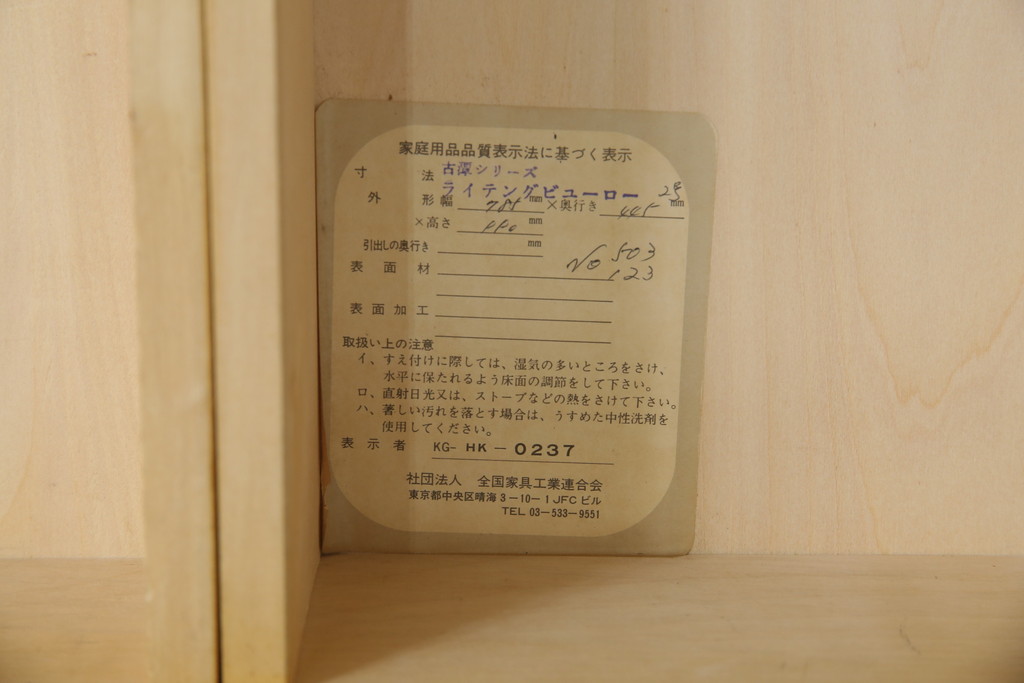 家庭用品品質表示法に基づく表示
古源シリーズ
寸 法
ライテングビューロー
外 形 幅 mm ×奥行き 445 mm
×高さ mm
引出しの奥行き mm
No 503
表 面 材 123
表 面 加 工
取扱い上の注意
イ、すえ付けに際しては、湿気の多いところをさけ、
水平に保たれるよう床面の調節をして下さい。
ロ、直射日光又は、ストーブなどの熱をさけて下さい。
ハ、著しい汚れを落とす場合は、うすめた中性洗剤を
使用してください。
表 示 者 KG- HK - 0237
社団法人 全国家具工業連合会
東京都中央区晴海3-10-1JFCビル
TEL 03-533-9551